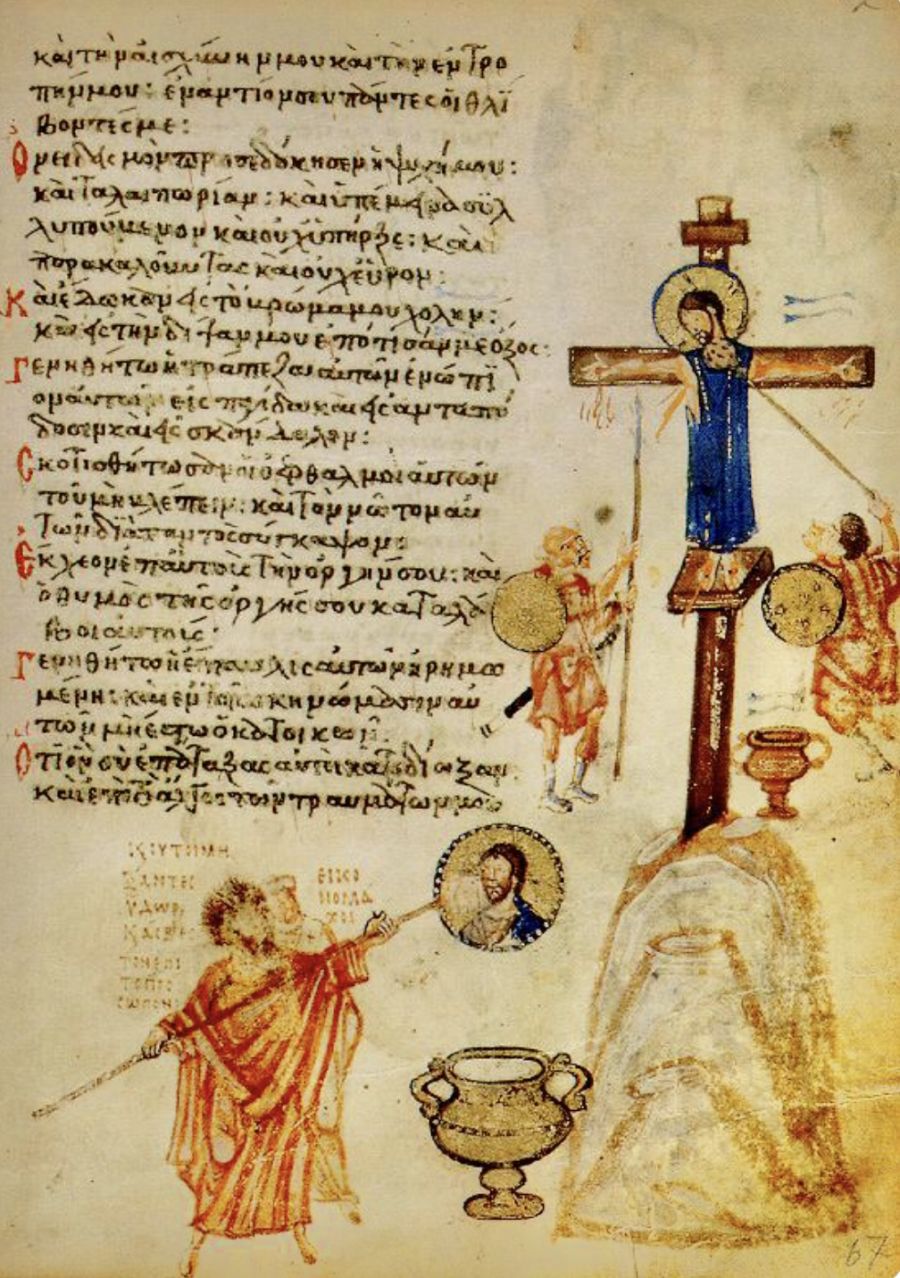 καὶ τὴν αἰσχύνην μου καὶ τὴν ἐντρο
πήν μου: ἐναντίον σου πάντες οἱ θλί
βοντές με:
Ονειδισμὸν προσεδόκησεν ἡ ψυχή μου:
καὶ ταλαιπωρίαν: καὶ ὑπέμεινα συλ
λυπούμενον καὶ οὐχ ὑπῆρξε: καὶ
παρακαλοῦντας καὶ οὐχ εὗρον:
Καὶ ἔδωκαν εἰς τὸ βρῶμά μου χολὴν:
καὶ εἰς τὴν δίψαν μου ἐπότισάν με ὄξος:
Γενηθήτω ἡ τράπεζα αὐτῶν ἐνώπι
ον αὐτῶν εἰς παγίδα καὶ εἰς ἀνταπό
δοσιν καὶ εἰς σκάνδαλον:
Σκοτισθήτωσαν οἱ ὀφθαλμοὶ αὐτῶν
τοῦ μὴ βλέπειν: καὶ τὸν νῶτον αὐ
τῶν διὰ παντὸς σύγκαμψον:
Εκχεον ἐπ αὐτοὺς τὴν ὀργήν σου: καὶ
ὁ θυμὸς τῆς ὀργῆς σου καταλά
βοι αὐτούς:
Γενηθήτω ἡ ἔπαυλις αὐτῶν ἠρημω
μένη: καὶ ἐν τοῖς σκηνώμασιν αὐ
τῶν μὴ ἔστω ὁ κατοικῶν:
Οτι ὃν σὺ ἐπάταξας αὐτοὶ κατεδίωξαν
καὶ ἐπὶ τὸ ἄλγος τῶν τραυμάτων μου
ΞΑΝΤΕΣ
ΥΔΩΡ
ΤΟΝ ΕΠΙ
ΤΟ ΠΡΟ
ΣΩΠΟΝ
ΕΙΚΟ
ΝΟΜΑ
ΧΟΙ
67